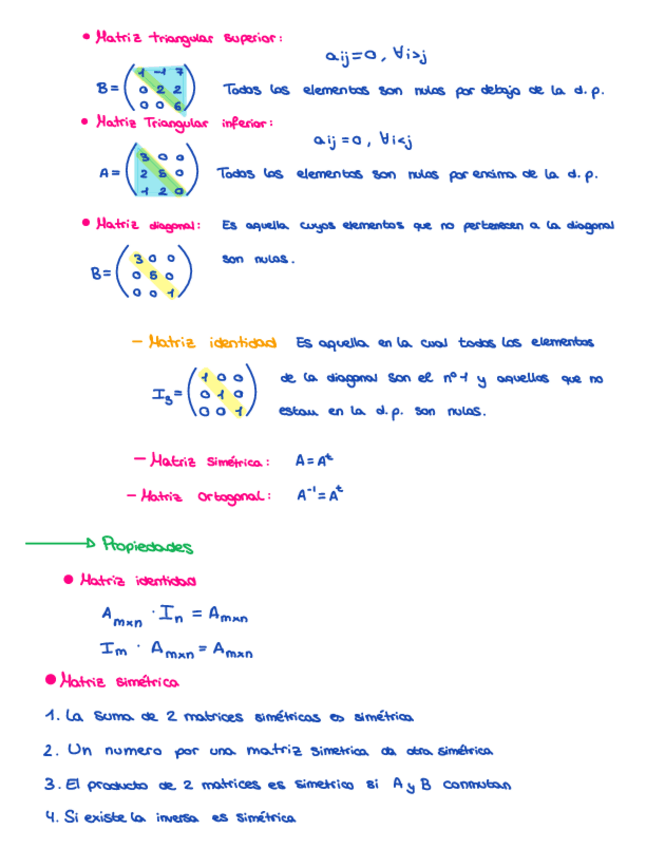 • Matriz triangular superior:
aij=0, ∀i>j
B= (1 -1 7
0 2 2
0 0 6) Todos los elementos son nulos por debajo de la d.p.
• Matriz Triangular inferior:
aij=0, ∀i<j
A= (3 0 0
2 5 0
1 2 0) Todos los elementos son nulos por encima de la d.p.
• Matriz diagonal: Es aquella cuyos elementos que no pertenecen a la diagonal
son nulos.
B= (3 0 0
0 5 0
0 0 1)
- Matriz identidad Es aquella en la cual todos los elementos
de la diagonal son el nº1 y aquellos que no
estan en la d.p. son nulos.
I₃= (1 0 0
0 1 0
0 0 1)
- Matriz Simétrica: A=Aᵗ
- Matriz Ortogonal: A⁻¹=Aᵗ
→ Propiedades
• Matriz identidad
Amxn · In = Amxn
Im · Amxn = Amxn
• Matriz simétrica
1. La suma de 2 matrices simétricas es simétrica
2. Un numero por una matriz simetrica da otra simétrica
3. El producto de 2 matrices es simetrico si A y B conmutan
4. Si existe la inversa es simétrica